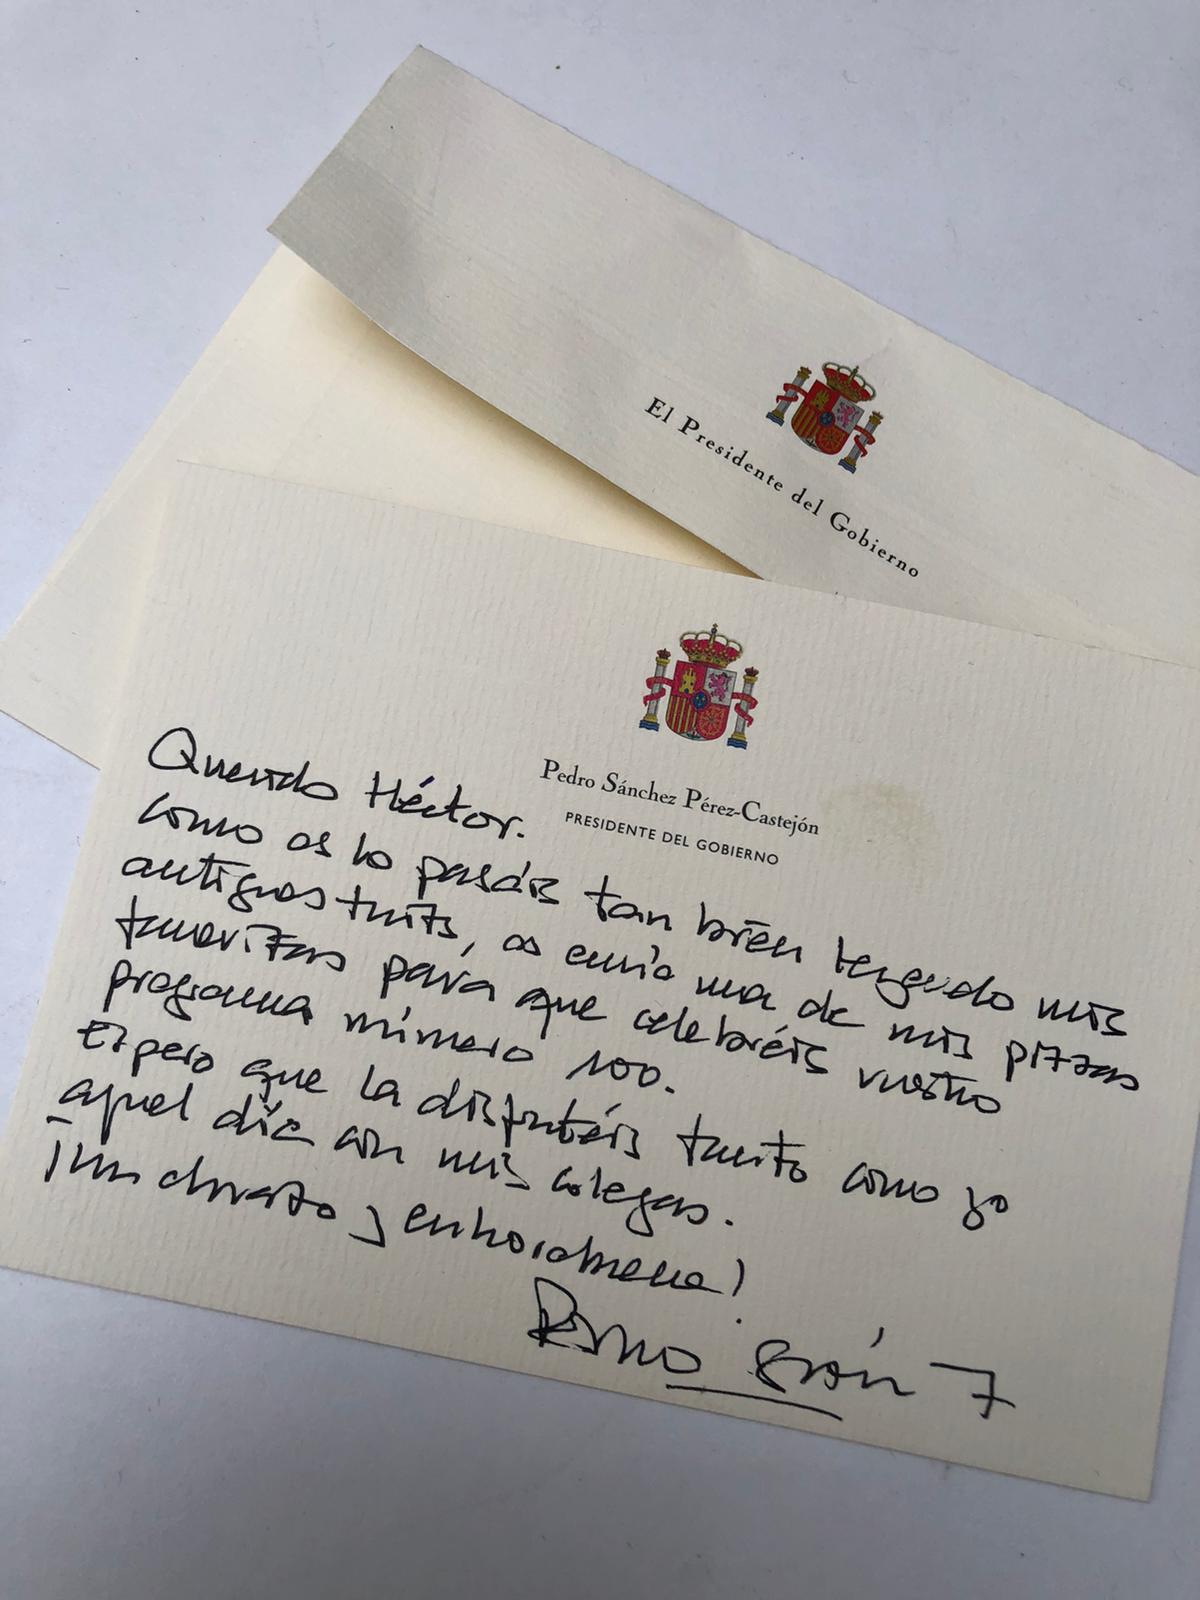 El Presidente del Gobierno
Pedro Sánchez Pérez-Castejón
PRESIDENTE DEL GOBIERNO
Querido Héctor.
como os lo pasáis tan bien leyendo mis
antiguos tuits, os envío una de mis pizzas
favoritas para que celebréis vuestro
programa número 100.
Espero que la disfrutéis tanto como yo
aquel día con mis colegas.
¡Un abrazo y enhorabuena!